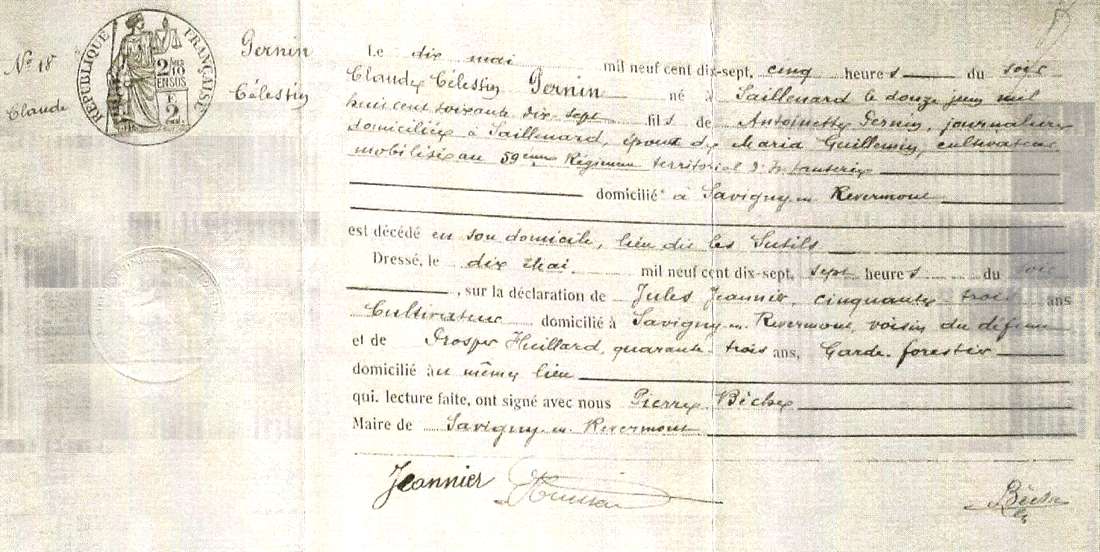 Nº 18
Pernin
Claude
Célestin
RÉPUBLIQUE FRANÇAISE
Le dix mai mil neuf cent dix-sept, cinq heures du soir
Claude Célestin Pernin né à Saillenard le douze juin mil
huit cent soixante dix sept fils de Antoinette Pernin, journalière
domiciliée à Saillenard, époux de Maria Guillemin, cultivateur
mobilisé au 59ème Régiment territorial d'Infanterie
domicilié à Savigny en Revermont
est décédé en son domicile, lieu dit les
Dressé, le dix Mai mil neuf cent dix-sept, sept heures du soir
, sur la déclaration de Jules Jeannier, cinquante trois ans
Cultivateur domicilié à Savigny en Revermont, voisin du défunt
et de Prosper Huillard, quarante-trois ans, Garde-forestier
domicilié au même lieu
qui, lecture faite, ont signé avec nous Pierre
Maire de Savigny en Revermont
Jeannier